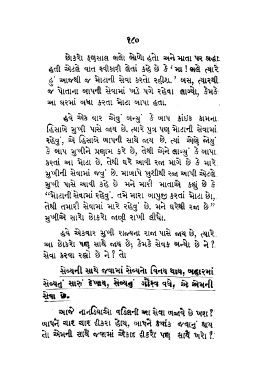 ૧૮૦
છોકરો હળુહળુ ભલો ભોળો હતો. અને માતા પર શ્રદ્ધા
હતી એટલે વાત સ્વીકારી લેતાં કહે છે કે ‘મા ! ભલે ત્યારે
હું આજથી જ મોટાની સેવા કરતો રહીશ.’ બસ, ત્યારથી
જ પોતાના બાપની સેવામાં ખડે પગે રહેવા લાગ્યો, કેમકે
એ ઘરમાં બધા કરતા મોટા બાપા હતા.
હવે એક વાર એવું બન્યું કે બાપ કાંઈક કામના
હિસાબે મુખી પાસે જાય છે. ત્યારે પુત્ર પણ મોટાની સેવામાં
રહેવું, એ હિસાબે બાપની સાથે જાય છે. ત્યાં એણે જોયું
કે બાપ મુખીને પ્રણામ કરે છે, તેથી એને લાગ્યું કે બાપા
કરતાં આ મોટા છે, તેથી ઘરે આવી રજા માગે છે કે મારે
મુખીની સેવામાં જવું છે. માબાપે ખુશીથી રજા આપી એટલે
મુખી પાસે આવી કહે છે મને મારી માતાએ કહ્યું છે કે
“મોટાની સેવામાં રહેવું. તમે મારા બાપુજી કરતાં મોટા છો,
તેથી તમારી સેવામાં મારે રહેવું છે. મને ઘરેથી રજા છે”
મુખીએ સારો છોકરો જાણી રાખી લીધો.
હવે એકવાર મુખી રાજ્યના રાજા પાસે જાય છે, ત્યારે
આ છોકરો પણ સાથે જાય છે, કેમકે સેવક બન્યો છે ને ?
સેવા કરવા રહ્યો છે ને ? તો
સેવ્યની સાથે જવામાં સેવ્યનો વિનય થાય, બહારમાં
સેવ્યનું સારું દેખાય, સેવ્યનું ગૌરવ વધે, એ એમની
સેવા છે.
આજે નાનડિયાઓ વડિલની આ સેવા બજાવે છે ખરા ?
બાપને ચાર ચાર દીકરા હોય, બાપને ક્યાંક જવાનું થાય
તો એમની સાથે જવામાં એકાદ દીકરો પણ સાથે ખરો ?